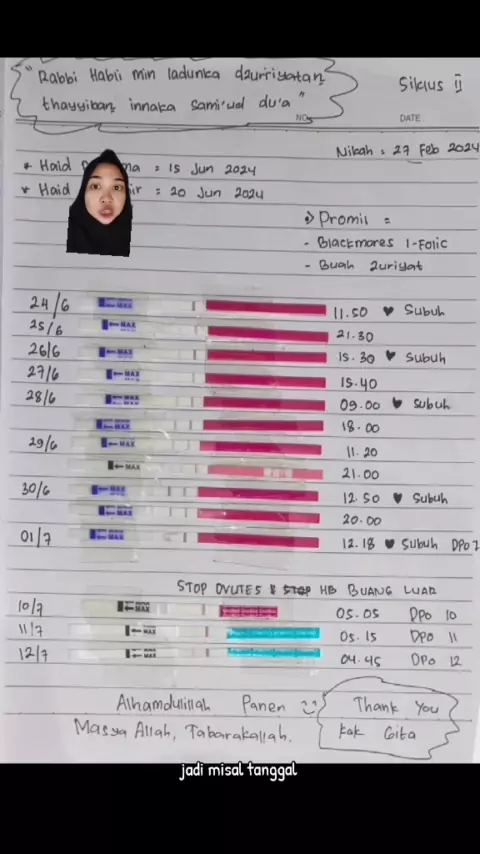 "Rabbi Habli min ladunka dzurriyatan
thayyiban innaka sami'ud du'a"
Siklus II
NO.
DATE
Nikah : 27 Feb 2024
* Haid ma : 15 Jun 2024
* Haid ir : 20 Jun 2024
Promil :
- Blackmores I-Folic
- Buah Zuriyat
24/6 MAX 11.50 ♥ Subuh
25/6 MAX 21.30
26/6 MAX 15.30 ♥ Subuh
27/6 MAX 15.40
28/6 MAX 09.00 ♥ Subuh
MAX 18.00
29/6 MAX 11.20
MAX 21.00
30/6 MAX 12.50 ♥ Subuh
MAX 20.00
01/7 MAX 12.18 ♥ Subuh DPO
STOP OVUTES & STOP HB BUANG LUAR
10/7 MAX 05.05 DPO 10
11/7 MAX 05.15 DPO 11
12/7 MAX 04.45 DPO 12
Alhamdulillah Panen
Masya Allah, Tabarakallah.
Thank You
kak Gita
jadi misal tanggal